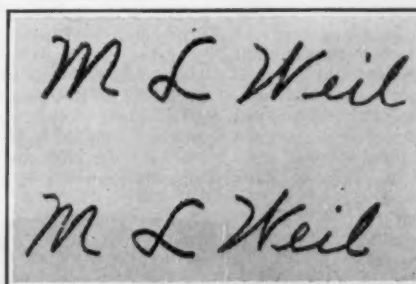 M L Weil
M L Weil